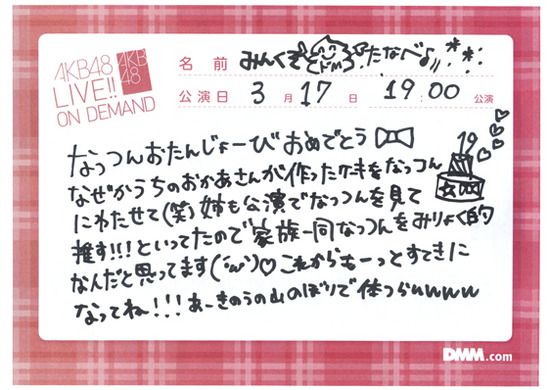 AKB48
LIVE!!
ON DEMAND
AKB
48
名前 みんくま たなべ♪!!
公演日 3月17日 19:00 公演
なっつんおたんじょーびおめでとう
19
なぜかうちのおかあさんが作ったケーキをなっつん
にわたせて(笑)姉も公演でなっつんを見て
推す!!!といってたので家族一同なっつんをみりょく的
なんだと思ってます(´ω`)♡これからもーっとすてきに
なってね!!!あーきのうの山のぼりで体つらいwwww
DMM.com